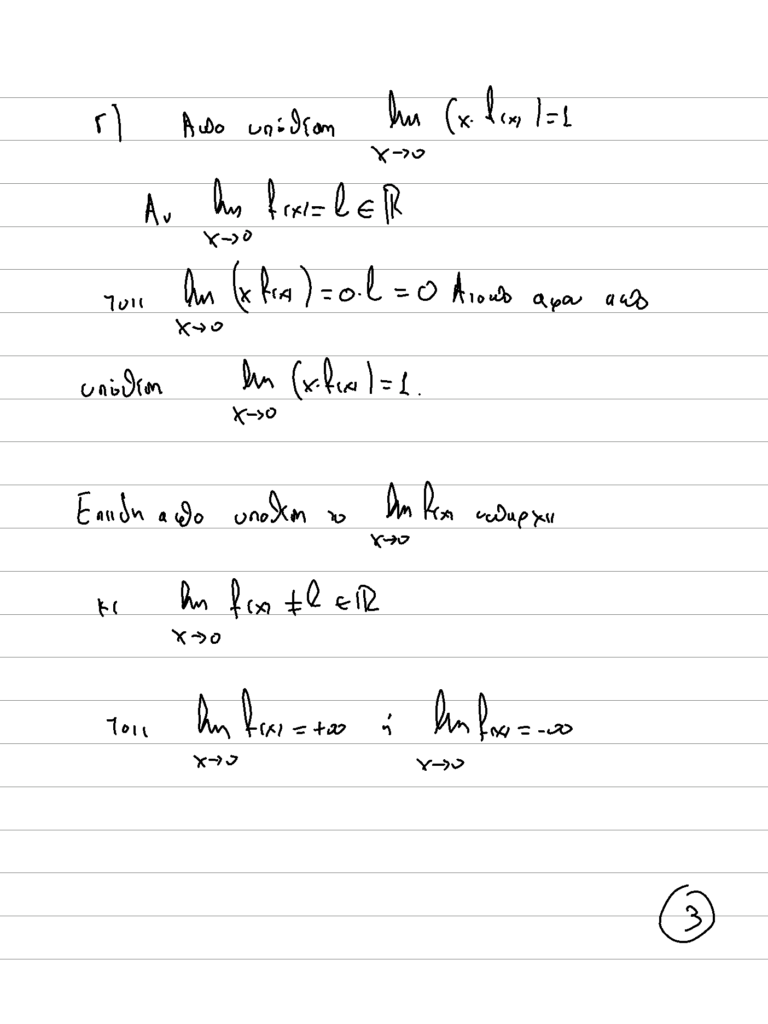 Γ) Από υπόθεση lim x→0 (x·f(x))=1
Αν lim x→0 f(x)=l∈ℝ
τότε lim x→0 (x f(x))=0·l=0 Άτοπο αφού από
υπόθεση lim x→0 (x·f(x))=1.
Επειδή από υπόθεση το lim x→0 f(x) υπάρχει
και lim x→0 f(x)≠l∈ℝ
τότε lim x→0 f(x)=+∞ ή lim x→0 f(x)=-∞
3